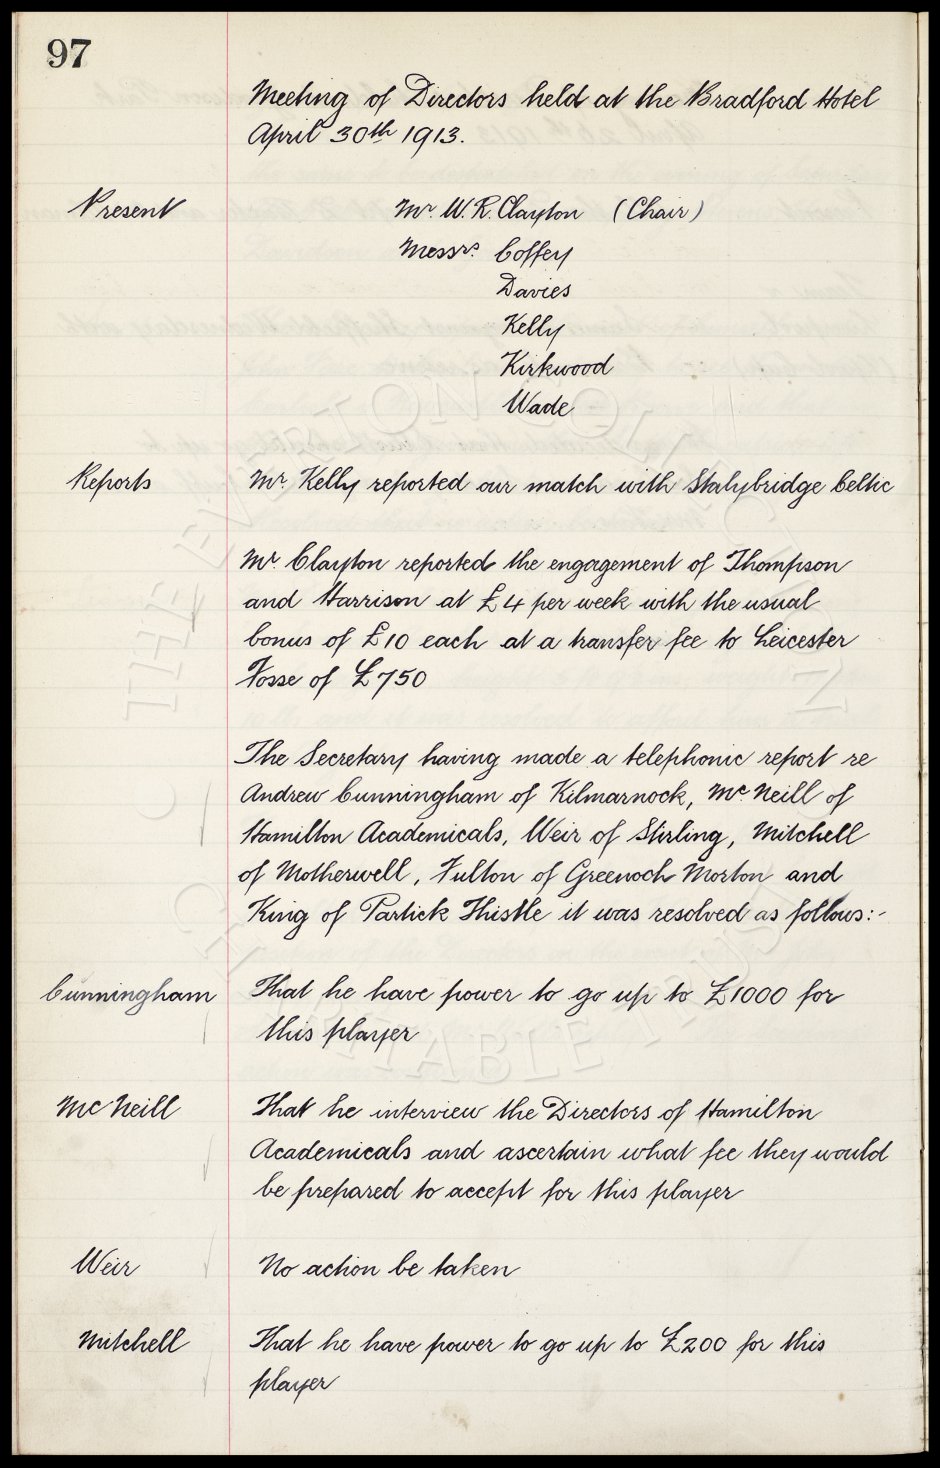 97
Meeting of Directors held at the Bradford Hotel
April 30th 1913.
Present Mr. W. R. Clayton (Chair)
Messrs. Coffey
Davies
Kelly
Kirkwood
Wade
Reports Mr. Kelly reported our match with Stalybridge Celtic
Mr. Clayton reported the engagement of Thompson
and Harrison at £4 per week with the usual
bonus of £10 each at a transfer fee to Leicester
Fosse of £750
The Secretary having made a telephonic report re
Andrew Cunningham of Kilmarnock, McNeill of
Hamilton Academicals, Weir of Stirling, Mitchell
of Motherwell, Fulton of Greenoch Morton and
King of Partick Thistle it was resolved as follows:-
Cunningham That he have power to go up to £1000 for
this player
McNeill That he interview the Directors of Hamilton
Academicals and ascertain what fee they would
be prepared to accept for this player
Weir No action be taken
Mitchell That he have power to go up to £200 for this
player